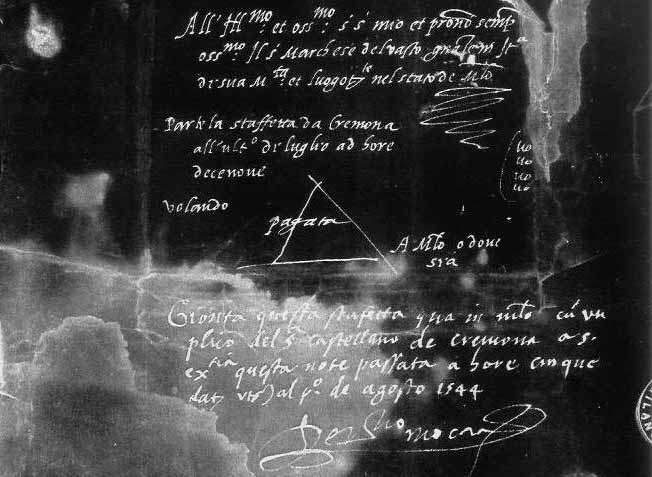 All' Ill^mo: et oss^mo: s.s mio et pron̄o semp̄
oss^mo. Il s. Marchese del vasto gn̄ale in It^a
de sua M^ta et luogot^te nel stato de Mlō
Parte la staffetta da Cremona
all'ult^o de luglio ad hore
decenove
volando
pagata
A Mlō o dove
sra
Gionta questa staffetta qua in mlō cū vn
plico del s^r castellano de Cremona a s.
ex^tia questa note passata a hore cinque
dat vts) al p^o. de agosto 1544